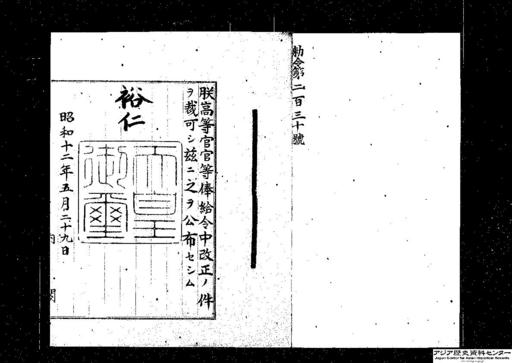 勅令第二百三十號
朕高等官官等俸給令中改正ノ件
ヲ裁可シ茲ニ之ヲ公布セシム
裕仁
天皇
御璽
昭和十二年五月二十九日
アジア歴史資料センター
Japan Center for Asian Historical Records